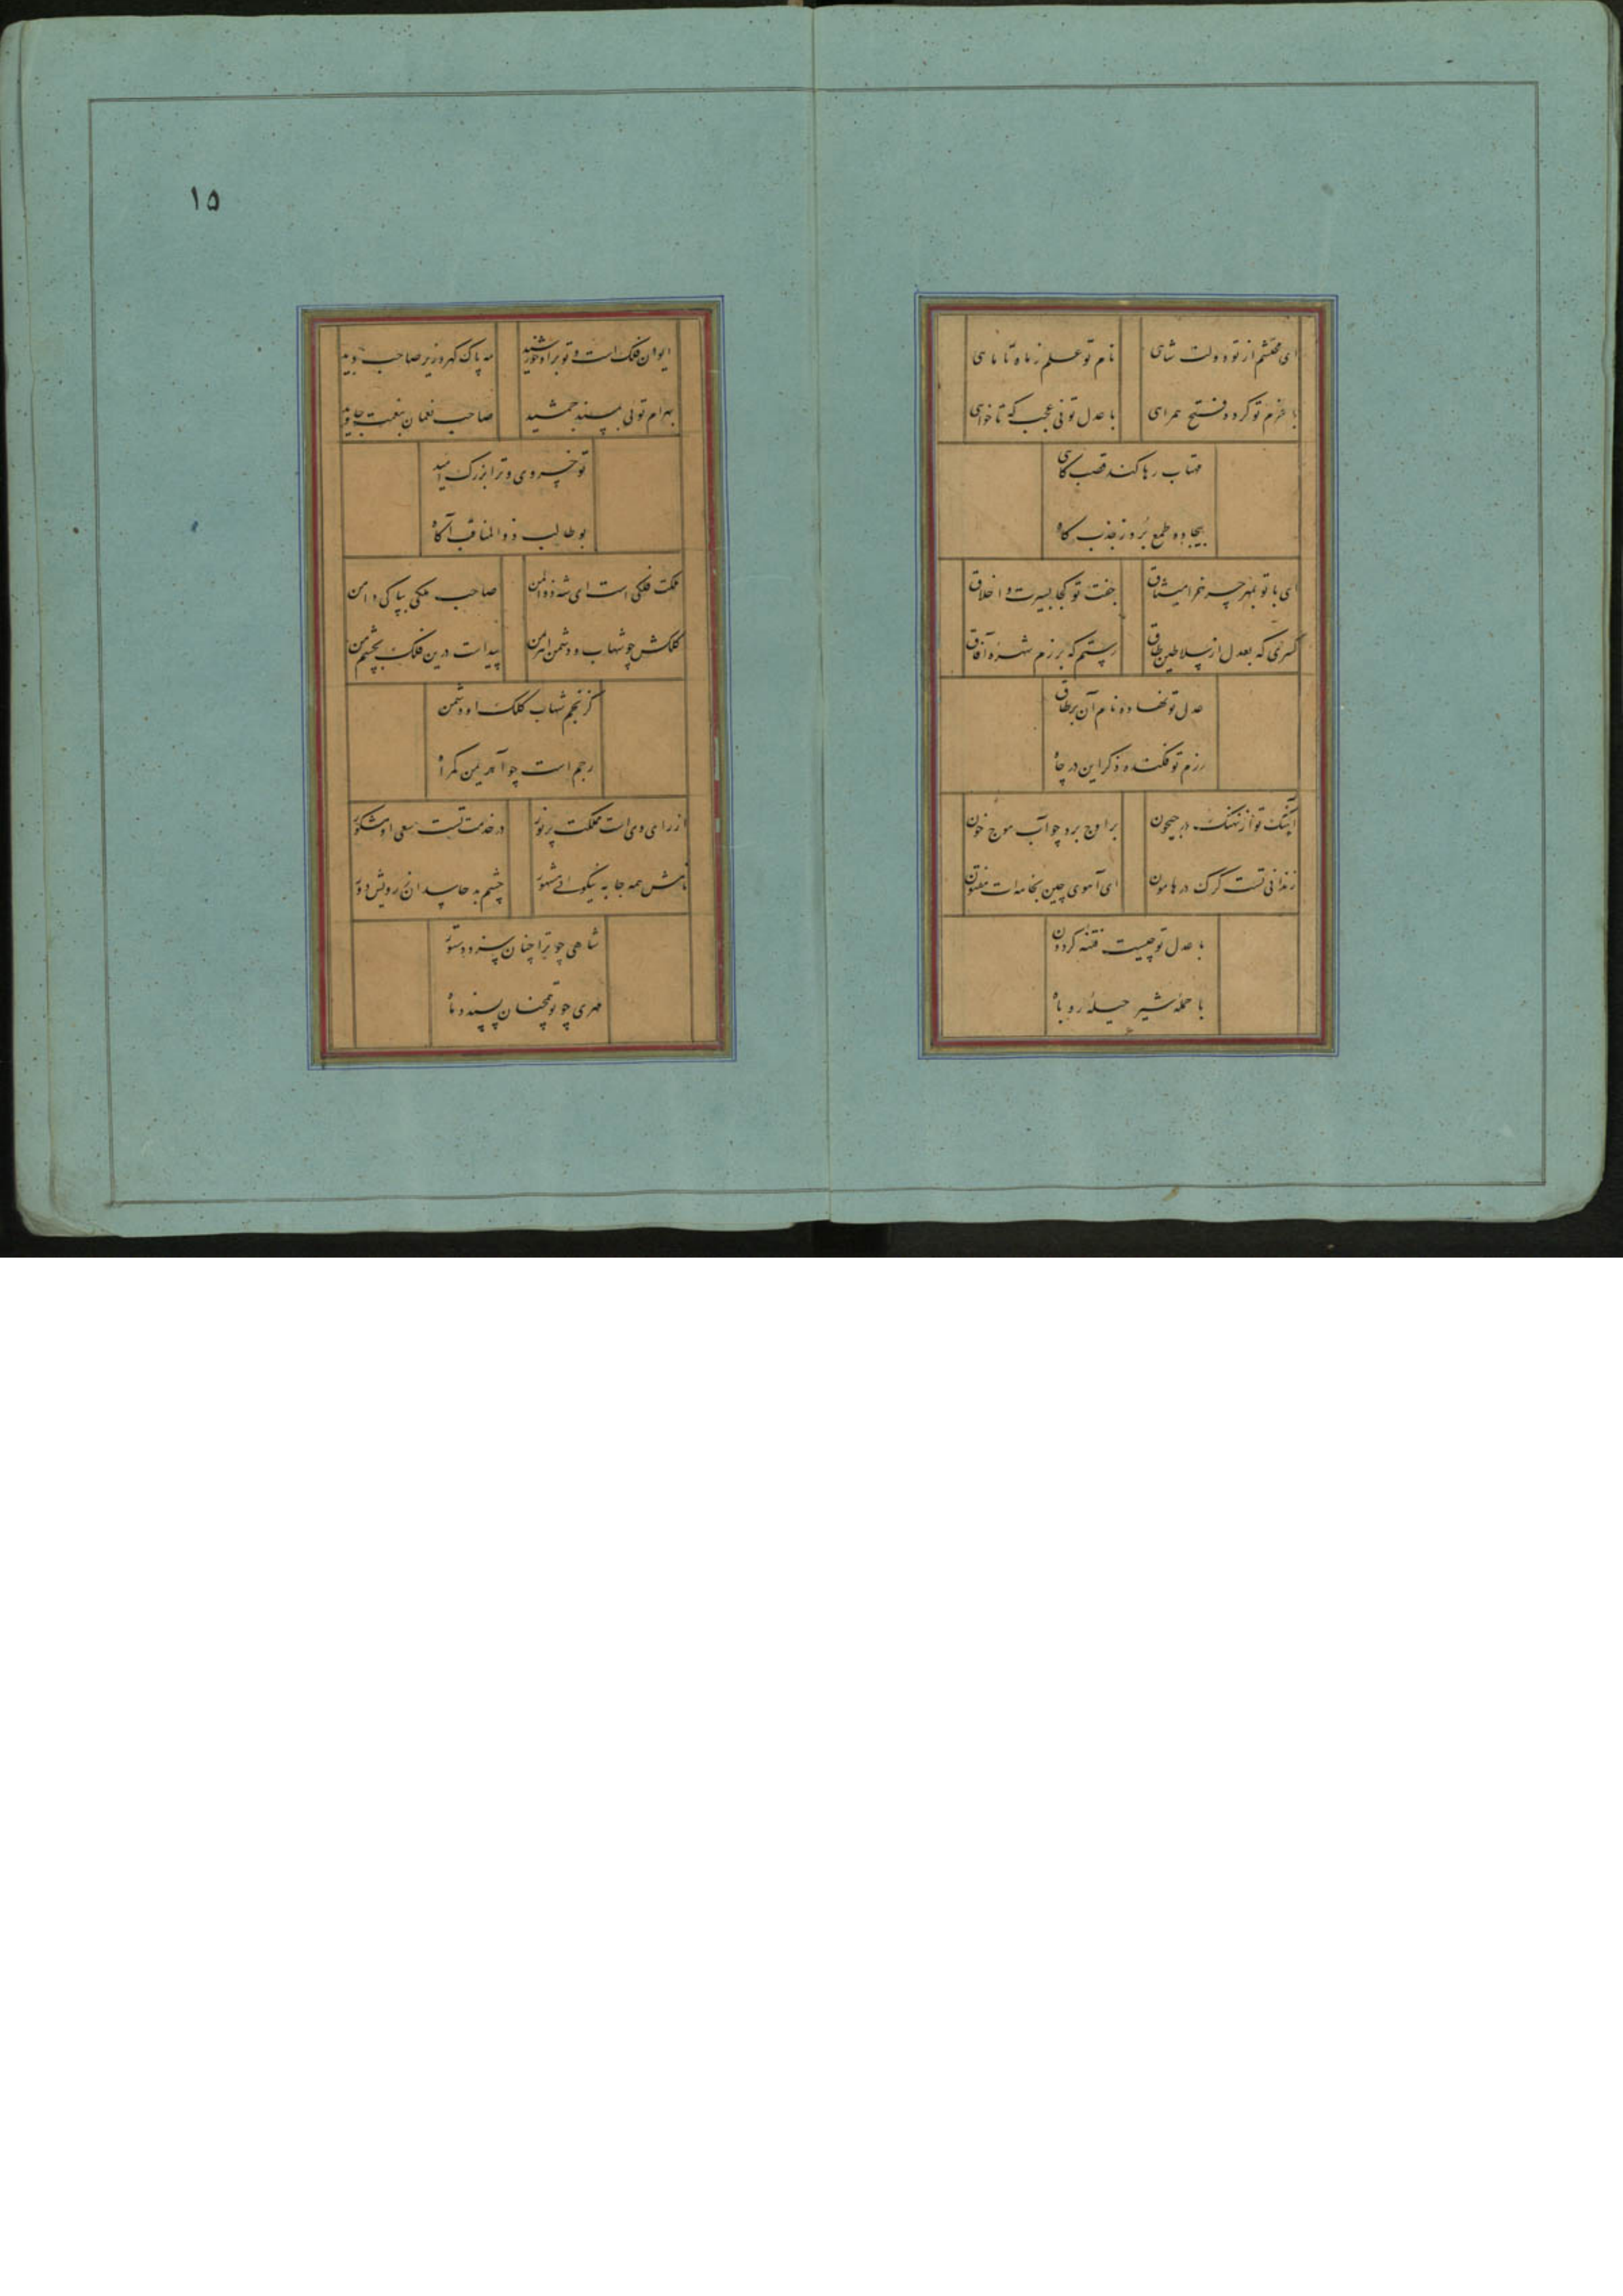 ای محتشم از تو دولت شاهی
نام تو علم ز ماه تا ماهی
با عزم تو کرده فتح همراهی
با عدل تو نی عجب که تا خواهی
مهتاب رها کند قصب کاهی
بیجاده طمع برد ز جذب کاه
ای با تو بمهر چرخ را میثاق
جفت تو کجا بسیرت و اخلاق
کسری که بعدل از سلاطین طاق
رستم که برزم شهره آفاق
عدل تو نهاده نام آن بر طاق
رزم تو فکنده ذکر این در چاه
آهنگ تو از نهنگ در جیحون
بر اوج برد چو آب موج خون
زندانی تست گرگ در هامون
ای آهوی چین بخامه ات مفتون
با عدل تو چیست فتنه گردون
با حمله شیر حیله روباه
۱۵
ایوان فلک است و تو بر او خورشید
مه پاک گهر وزیر صاحب دید
بهرام توئی بمسند جمشید
صاحب نعمان بنعمت جاوید
تو خسروی و ترا بزرگ امید
بو طالب ذو المناقب آگاه
ملکت فلکی است ای شه ذوالمن
صاحب ملکی بپاکی دامن
کلکش چو شهاب و دشمن اهرمن
پیداست درین فلک بچشم من
کز نجم شهاب کلک او دشمن
رجم است چو آهریمن گمراه
از رای وی است مملکت پر نور
در خدمت تست سعی او مشکور
نامش همه جا به نیکوئی مشهور
چشم بد حاسدان ز رویش دور
شاهی چو ترا چنان سزد دستور
مهری چو تو همچنان پسندد ماه